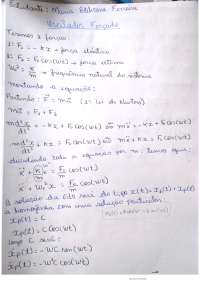 Estudante: Maria Edilaine Ferreira
Oscilador Forçado
Teremos 2 forças:
1: F₁ = -kx → força elástica
2: F₂ = F₀ cos(Wt) → força externa
W₀² = k/m → frequência natural do sistema
montando a equação:
Partindo: F = mẍ (2ª Lei de Newton)
mẍ = F₁ + F₂
m d²x/dt² = -kx + F₀ cos(Wt) ou mẍ = -kx + F₀ cos(Wt)
m d²x/dt² + kx = F₀ cos(Wt) ou mẍ + kx = F₀ cos(Wt)
dividindo toda a equação por m, temos que:
ẍ + k/m x = F₀/m cos(Wt)
ẍ + W₀² x = F₀ cos(Wt)/m
A solução da EDO será do tipo X(t) = Xₕ(t) + Xₚ(t)
a homogênea com uma solução particular:
Xₚ(t) = C
Xₚ(t) = C cos(Wt)
logo C será:
ẋₚ(t) = -WC sen(Wt)
ẍₚ(t) = -W²C cos(Wt)